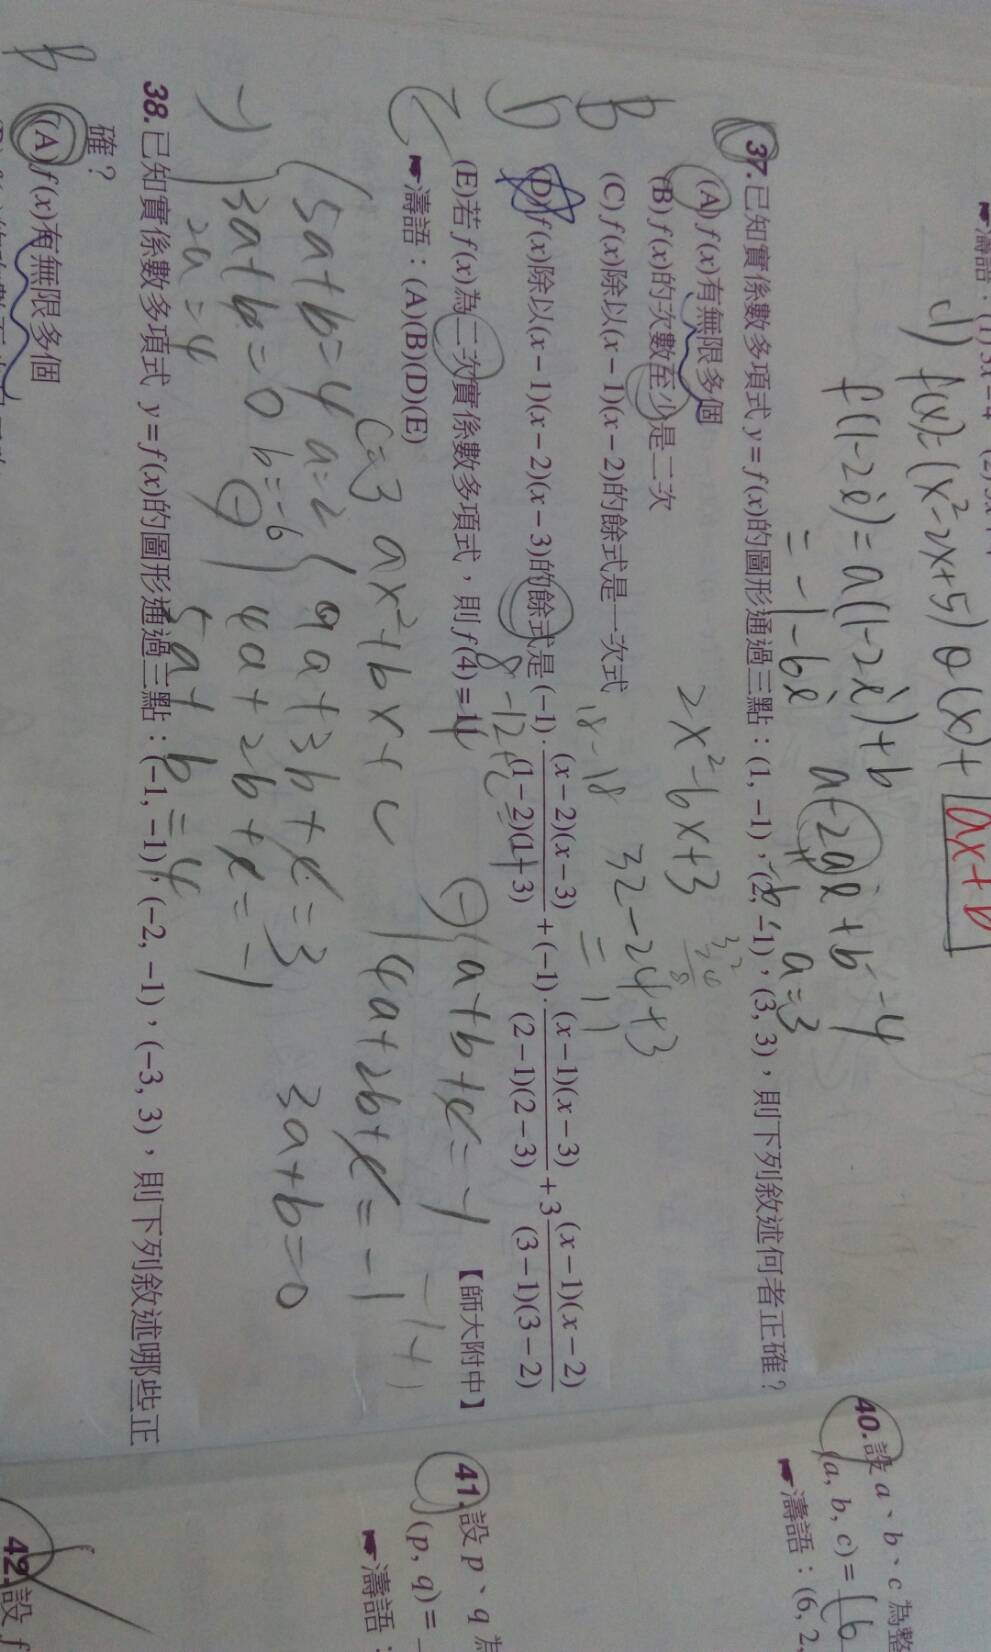 ☛濤語：(1) 3x－4
d) f(x)=(x²-2x+5)Q(x)+ ax+b
f(1-2i)=a(1-2i)+b
=-1-6i a-2ai+b -4
a=3
37.已知實係數多項式 y＝f(x)的圖形通過三點：(1, －1)，(2, －1)，(3, 3)，則下列敘述何者正確？
(A) f(x)有無限多個
(B) f(x)的次數至少是二次
2x²-6x+3
(C) f(x)除以(x－1)(x－2)的餘式是一次式
18-18
32-24+3
=11
(D) f(x)除以(x－1)(x－2)(x－3)的餘式是(－1)‧(x－2)(x－3)/(1－2)(1－3)＋(－1)‧(x－1)(x－3)/(2－1)(2－3)＋3(x－1)(x－2)/(3－1)(3－2)
8-12+c
(E)若 f(x)為二次實係數多項式，則 f(4)＝11
【師大附中】
☛濤語：(A)(B)(D)(E)
a+b+c=-1
c=3 ax²+bx+c
4a+2b+c=-1
5a+b=4 a=2
9a+3b+c=3
3a+b=0
-) 3a+b=0 b=-6
4a+2b+c=-1
2a=4
5a+b=4
38.已知實係數多項式 y＝f(x)的圖形通過三點：(－1, －1)，(－2, －1)，(－3, 3)，則下列敘述哪些正
確？
(A) f(x)有無限多個
40.設 a、b、c 為整
(a, b, c)＝(6
☛濤語：(6, 2,
41.設 p、q 為
(p, q)＝
☛濤語：
42.設 f